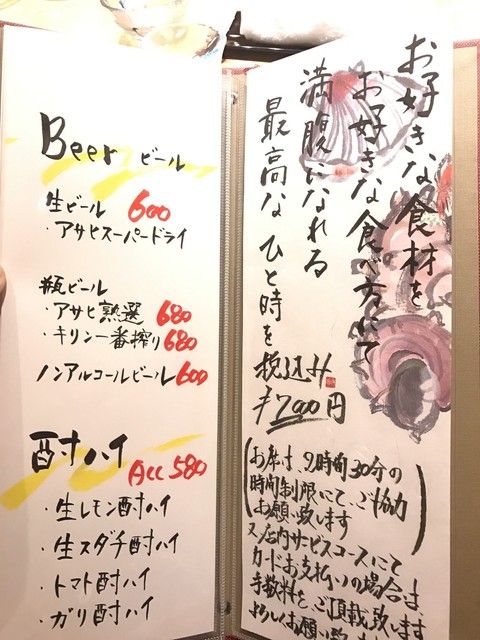 Beer ビール
生ビール 600
・アサヒスーパードライ
瓶ビール
・アサヒ熟選 680
・キリン一番搾り 680
ノンアルコールビール 600
酎ハイ All 580
・生レモン酎ハイ
・生スダチ酎ハイ
・トマト酎ハイ
・ガリ酎ハイ
お好きな食材を
お好きな食べ方にて
満腹になれる
最高なひと時を
税込み
¥7000円
(お席は、2時間30分の
時間制限にて、ご協力
お願い致します)
又、店内サービスコースにて
カードお支払いの場合は、
手数料を、ご頂戴致します
よろしくお願い致